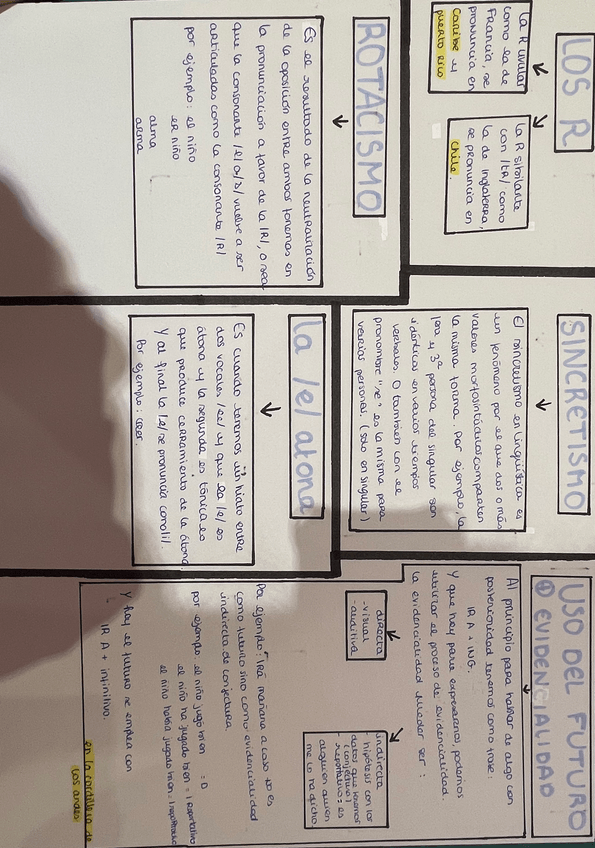 LOS R
la R uvular
como la de
Francia, se
pronuncia en
Caribe y
puerto rico
la R sibilante
con /tR/ como
la de inglaterra,
se pronuncia en
Chile.
ROTACISMO
Es el resultado de la neutralización
de la oposición entre ambos fonemas en
la pronunciación a favor de la /R/, o sea
que la consonante /l/ o/s/ vuelve a ser
articuladas como la consonante /R/
por ejemplo: el niño
er niño
alma
arma
SINCRETISMO
El sincretismo en lingüística es
un fenómeno por el que dos o más
valores morfosintácticos comparten
la misma forma. Por ejemplo, la
1era y 3ª persona del singular son
idénticas en varios tiempos
verbales. O también con el
pronombre "se" es la misma para
varias personas. (solo en singular)
la /e/ atona
Es cuando tenemos un hiato entre
dos vocales /ee/ y que la /e/ es
átona y la segunda es tónica es
que produce cerramiento de la átona
Y al final la /e/ se pronuncia como /i/.
Por ejemplo: leer.
USO DEL FUTURO
① EVIDENCIALIDAD
Al principio para hablar de algo con
posterioridad tenemos como frase:
IR A + ING.
Y que hay para expresarnos, podemos
utilizar el proceso de evidencialidad.
la evidencialidad puede ser :
directa
-visual
-auditiva
indirecta
hipótesis con los
datos que tenemos
(conjetivo)
reportativo: es
alguien quien
me lo ha dicho.
Por ejemplo: Irá mañana a casa no es
como futuro sino como evidencialidad
indirecta de conjetura.
por ejemplo el niño jugó bien = D
el niño ha jugado bien = I reportativo
el niño había jugado bien =
Y hay el futuro se emplea con
IR A + infinitivo.
en la cordillera de
los andes